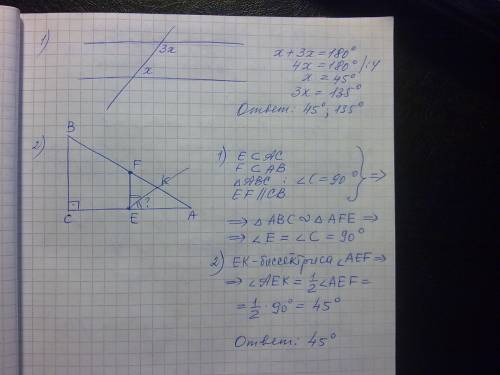 1)
3x
x
x + 3x = 180°
4x = 180° /:4
x = 45°
3x = 135°
Ответ: 45°; 135°
2)
B
F
K
?
C
E
A
1) E ⊂ AC
F ⊂ AB
△ABC : ∠C = 90°
EF || CB
⇒
⇒ △ABC ∾ △AFE ⇒
⇒ ∠E = ∠C = 90°
2) EK - биссектриса ∠AEF ⇒
⇒ ∠AEK = 1/2 ∠AEF =
= 1/2 · 90° = 45°
Ответ: 45°